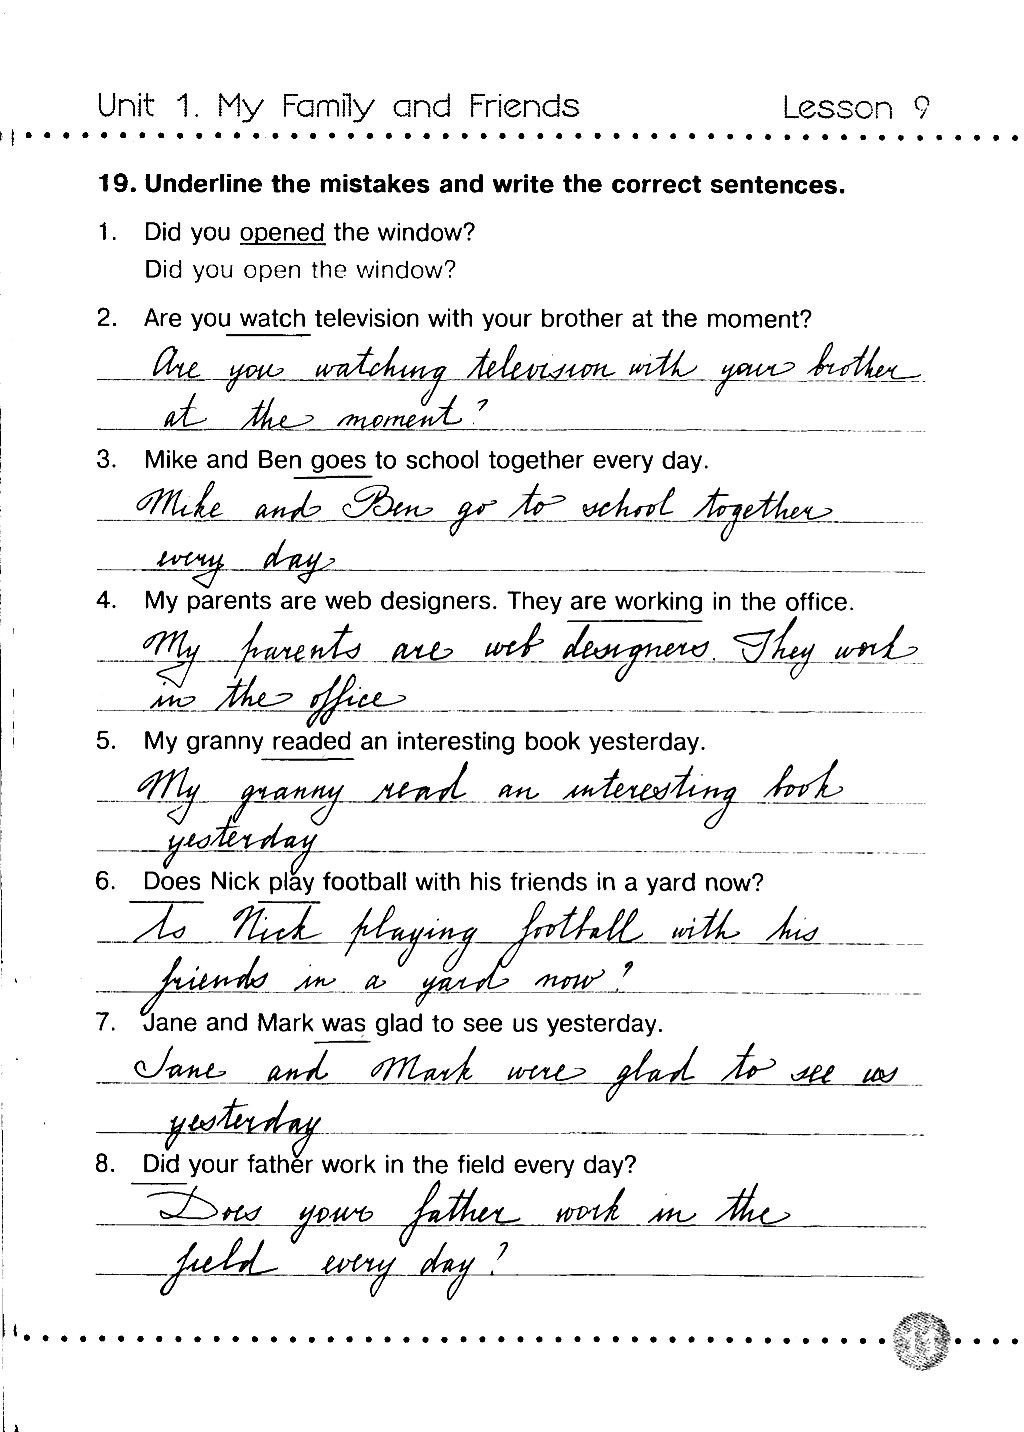 Unit 1. My Family and Friends Lesson 9
19. Underline the mistakes and write the correct sentences.
1. Did you opened the window?
Did you open the window?
2. Are you watch television with your brother at the moment?
Are you watching television with your brother
at the moment?
3. Mike and Ben goes to school together every day.
Mike and Ben go to school together
every day
4. My parents are web designers. They are working in the office.
My parents are web designers. They work
in the office
5. My granny readed an interesting book yesterday.
My granny read an interesting book
yesterday
6. Does Nick play football with his friends in a yard now?
Is Nick playing football with his
friends in a yard now?
7. Jane and Mark was glad to see us yesterday.
Jane and Mark were glad to see us
yesterday
8. Did your father work in the field every day?
Does your father work in the
field every day?
11